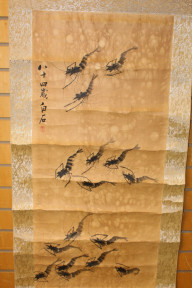 八十四歲白石